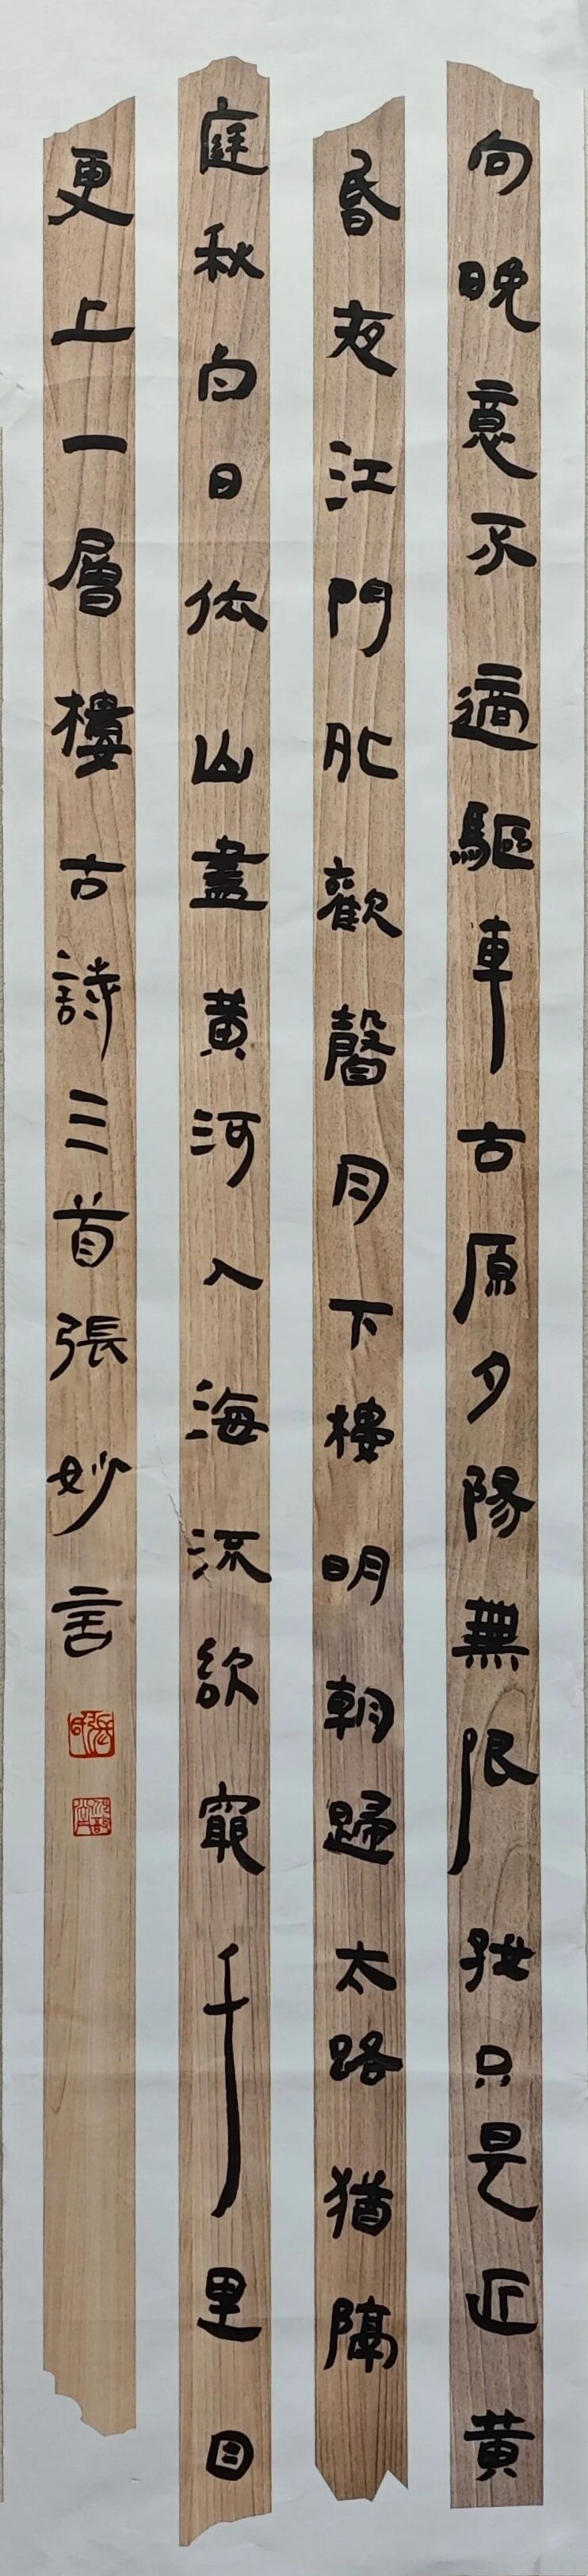 向晚意不適驅車古原夕陽無限好只是近黃
昏夜江門外歡聲月下樓明朝歸去路猶隔
庭秋白日依山盡黃河入海流欲窮千里目
更上一層樓古詩三首張妙言